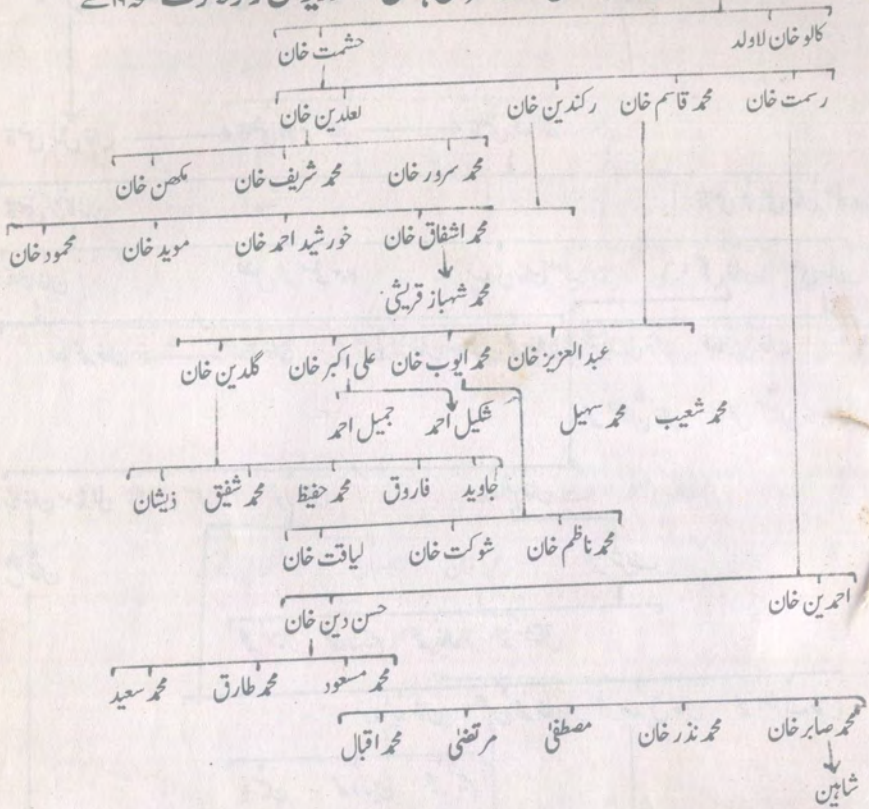 کالو خان لاولد حشمت خان
رسمت خان محمد قاسم خان رکندین خان لعلدین خان
محمد سرور خان محمد شریف خان مکھن خان
محمد اشفاق خان خورشید احمد خان موید خان محمود خان
محمد شہباز قریشی
عبدالعزیز خان محمد ایوب خان علی اکبر خان گلدین خان
محمد شعیب محمد سہیل شکیل احمد جمیل احمد
جاوید فاروق محمد حفیظ محمد شفیق ذیشان
محمد ناظم خان شوکت خان لیاقت خان
احمدین خان حسن دین خان
محمد مسعود محمد طارق محمد سعید
محمد صابر خان محمد نذر خان مصطفیٰ مرتضیٰ محمد اقبال
شاہین